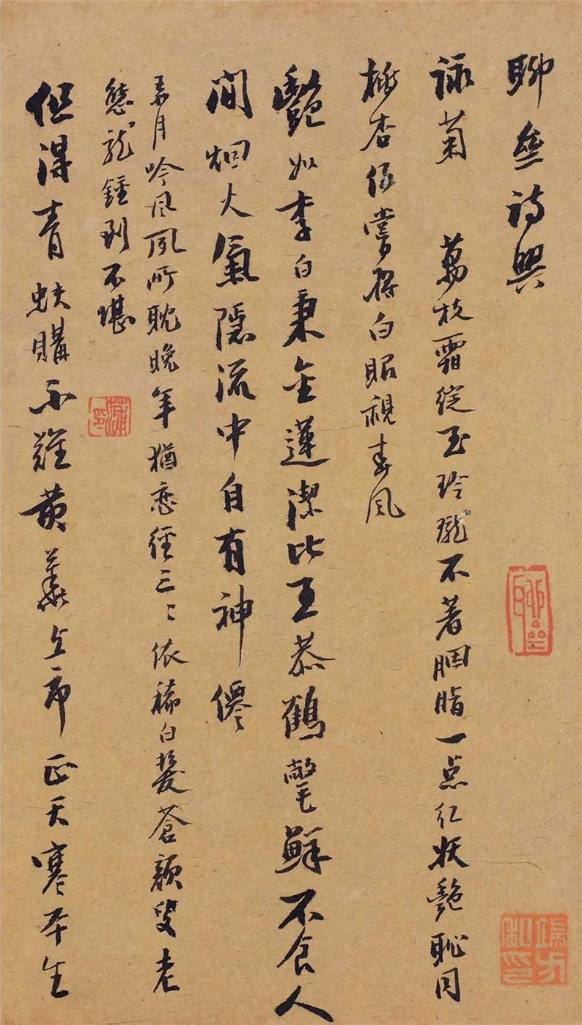 聊齋詩興
詠菊 荔枝霜綻玉玲瓏不著胭脂一点紅狀艷恥同
桃杏伍嘗將白眼視春風
艷如李白秉金蓮潔比王恭鶴氅鮮不食人
間烟火氣隱流中自有神僊
弄月吟風夙所耽晚年猶戀徑三〻依稀白髮蒼顏叟老
態龍鍾到不堪
但得青蚨購不難黃華上市正天寒本生